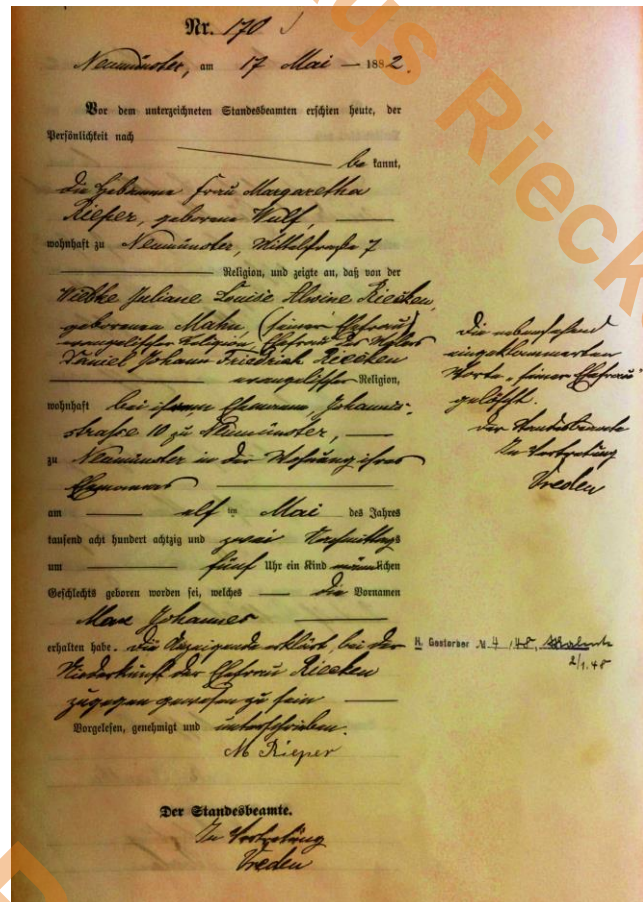 Nr. 170
Neumünster, am 17 Mai — 1882.
Vor dem unterzeichneten Standesbeamten erschien heute, der
Persönlichkeit nach
be kannt,
die Hebamme Frau Margaretha
Rieper, geborene Wulf,
wohnhaft zu Neumünster, Mittelstraße 7
Religion, und zeigte an, daß von der
Wiebke Juliane Louise Alwine Riecken,
geborenen Mahn, (seiner Ehefrau)
evangelischer Religion, Ehefrau des
Daniel Johann Friedrich Riecken
evangelischer Religion,
wohnhaft bei ihrem Ehemann, Johannis-
strasse 10 zu Neumünster,
zu Neumünster in der Wohnung ihres
Ehemannes
am elf ten Mai des Jahres
tausend acht hundert achtzig und zwei Vormittags
um fünf Uhr ein Kind männlichen
Geschlechts geboren worden sei, welches die Vornamen
Max Johannes
erhalten habe. Die Anzeigende erklärt, bei der
Niederkunft der Ehefrau Riecken
zugegen gewesen zu sein
Vorgelesen, genehmigt und unterschrieben.
M Rieper
Der Standesbeamte.
In Vertretung
Vreden
Die nebenstehend
eingeklammerten
Worte „seiner Ehefrau"
gelöscht.
Der Standesbeamte
In Vertretung
Vreden
H. Gestorben № 4/48,
2/1.48
us Rieck